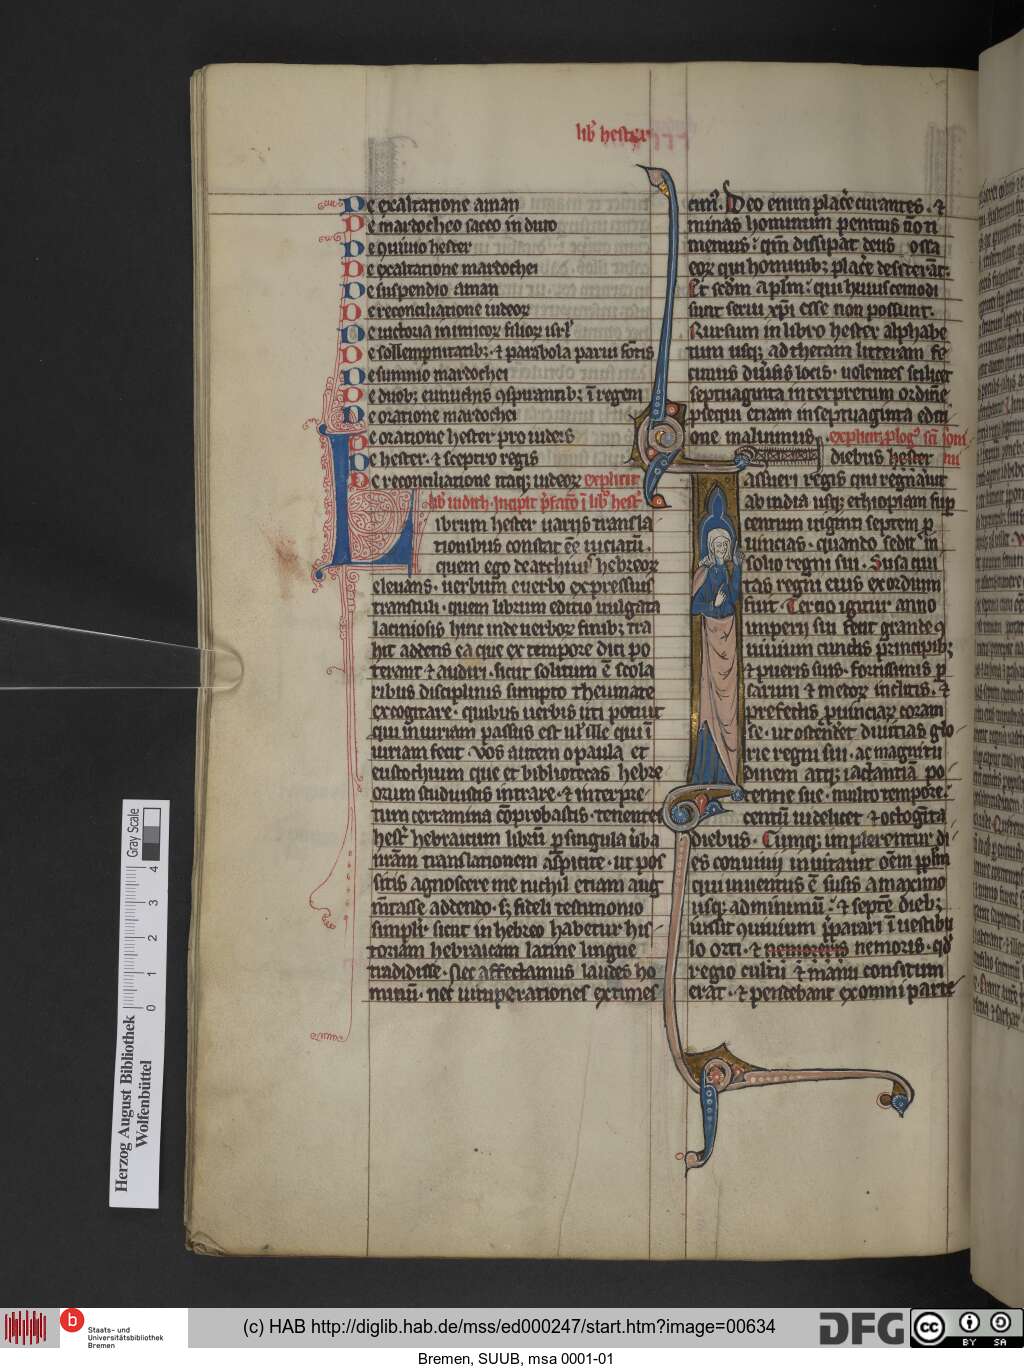 lib' hester
De exaltatione aman
De mardocheo sacco induto
De conuiuio hester
De exaltatione mardochei
De suspendio aman
De reconciliatione iudeoꝝ
De uictoria inimicoꝝ filioꝝ isrl'
De sollempnitatibꝫ· ⁊ parabola parui fōtis
De sumnio mardochei
De duobꝫ eunuchis ꝯspirantibꝫ ī regem
De oratione mardochei
De oratione hester pro iudeis
De hester· ⁊ sceptro regis
De reconciliatione itaqꝫ iudeoꝝ explicit
lib' iudith· Incipit p̄fatō ī lib' hest'
Librum hester uariis transla
tionibus constat eē uiciatū·
quem ego de archiuis hebreoꝝ
eleuans· uerbum e uerbo expressius
transtuli· quem librum editio uulgata
laciniosis hinc inde uerboꝝ finibꝫ tra
hit addens ea que ex tempore dici po
terant ⁊ audiri· sicut solitum ē scola
ribus disciplinis sumpto themate
excogitare· quibus uerbis uti potuit
qui iniuriam passus est ul' ille qui ī
iuriam fecit· Vos autem o paula et
eustochium que et bibliotecas hebre
orum studuistis intrare· ⁊ interpre
tum certamina cōprobastis· tenentes
hest' hebraicum librū ꝑ singula u'ba
nr̄am translationem aspicite· ut pos
sitis agnoscere me nichil etiam aug
m̄tasse addendo· sꝫ fideli testimonio
simplr̄ sicut in hebreo habetur his
toriam hebraicam latine lingue
tradidisse· Nec affectamus laudes ho
minū· nec uituperationes extimes
cim'· Deo enim placēe curantes· ⁊
minas hominum penitus nō ti
memus· qm̄ dissipat deus ossa
eoꝝ qui hominibꝫ placēe desiderāt·
Et scdm aplm· qui huiuscemodi
sunt serui xp̄i esse non possunt·
Rursum in libro hester alphabe
tum usqꝫ ad thetam litteram fe
cimus diu'sis locis· uolentes scilicet
septuaginta interpretum ordinē
ꝓsequi etiam in septuaginta editi
one maluimus· explicit ꝓlog' sc̄i ieroni
mi
In diebus hester
assueri regis qui regnauit
ab india usqꝫ ethiopiam sup
centum uiginti septem ꝓ
uincias· quando sedit in
solio regni sui· Susa qui
tas regni eius exordium
fuit· Tercio igitur anno
imperii sui fecit grande ꝯ
uiuium cunctis principibꝫ
⁊ pueris suis· fortissimis ꝑ
sarum ⁊ medoꝝ inclitis· ⁊
prefectis ꝓuinciaꝝ coram
se· ut ostenderet diuitias glo
rie regni sui· ac magnitu
dinem atqꝫ iactantiā po
tentie sue· multo tempore·
centū uidelicet ⁊ octoginta
diebus· Cumqꝫ implerentur di
es conuiuii inuitauit oēm pplm
qui inuentus ē susis a maximo
usqꝫ ad minimū· ⁊ septē diebꝫ
iussit ꝯuiuium p̄parari ī uestibu
lo orti· ⁊ nemoreris nemoris· qd'
regio cultu ⁊ manu consitum
erat· ⁊ pendebant ex omni parte
Gray Scale
0 1 2 3 4
Herzog August Bibliothek
Wolfenbüttel
b
Staats- und
Universitätsbibliothek
Bremen
(c) HAB http://diglib.hab.de/mss/ed000247/start.htm?image=00634
DFG
cc
BY SA
Bremen, SUUB, msa 0001-01